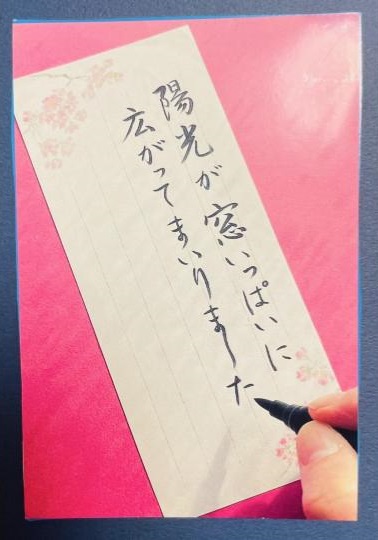 陽光が窓いっぱいに
広がってまいりました